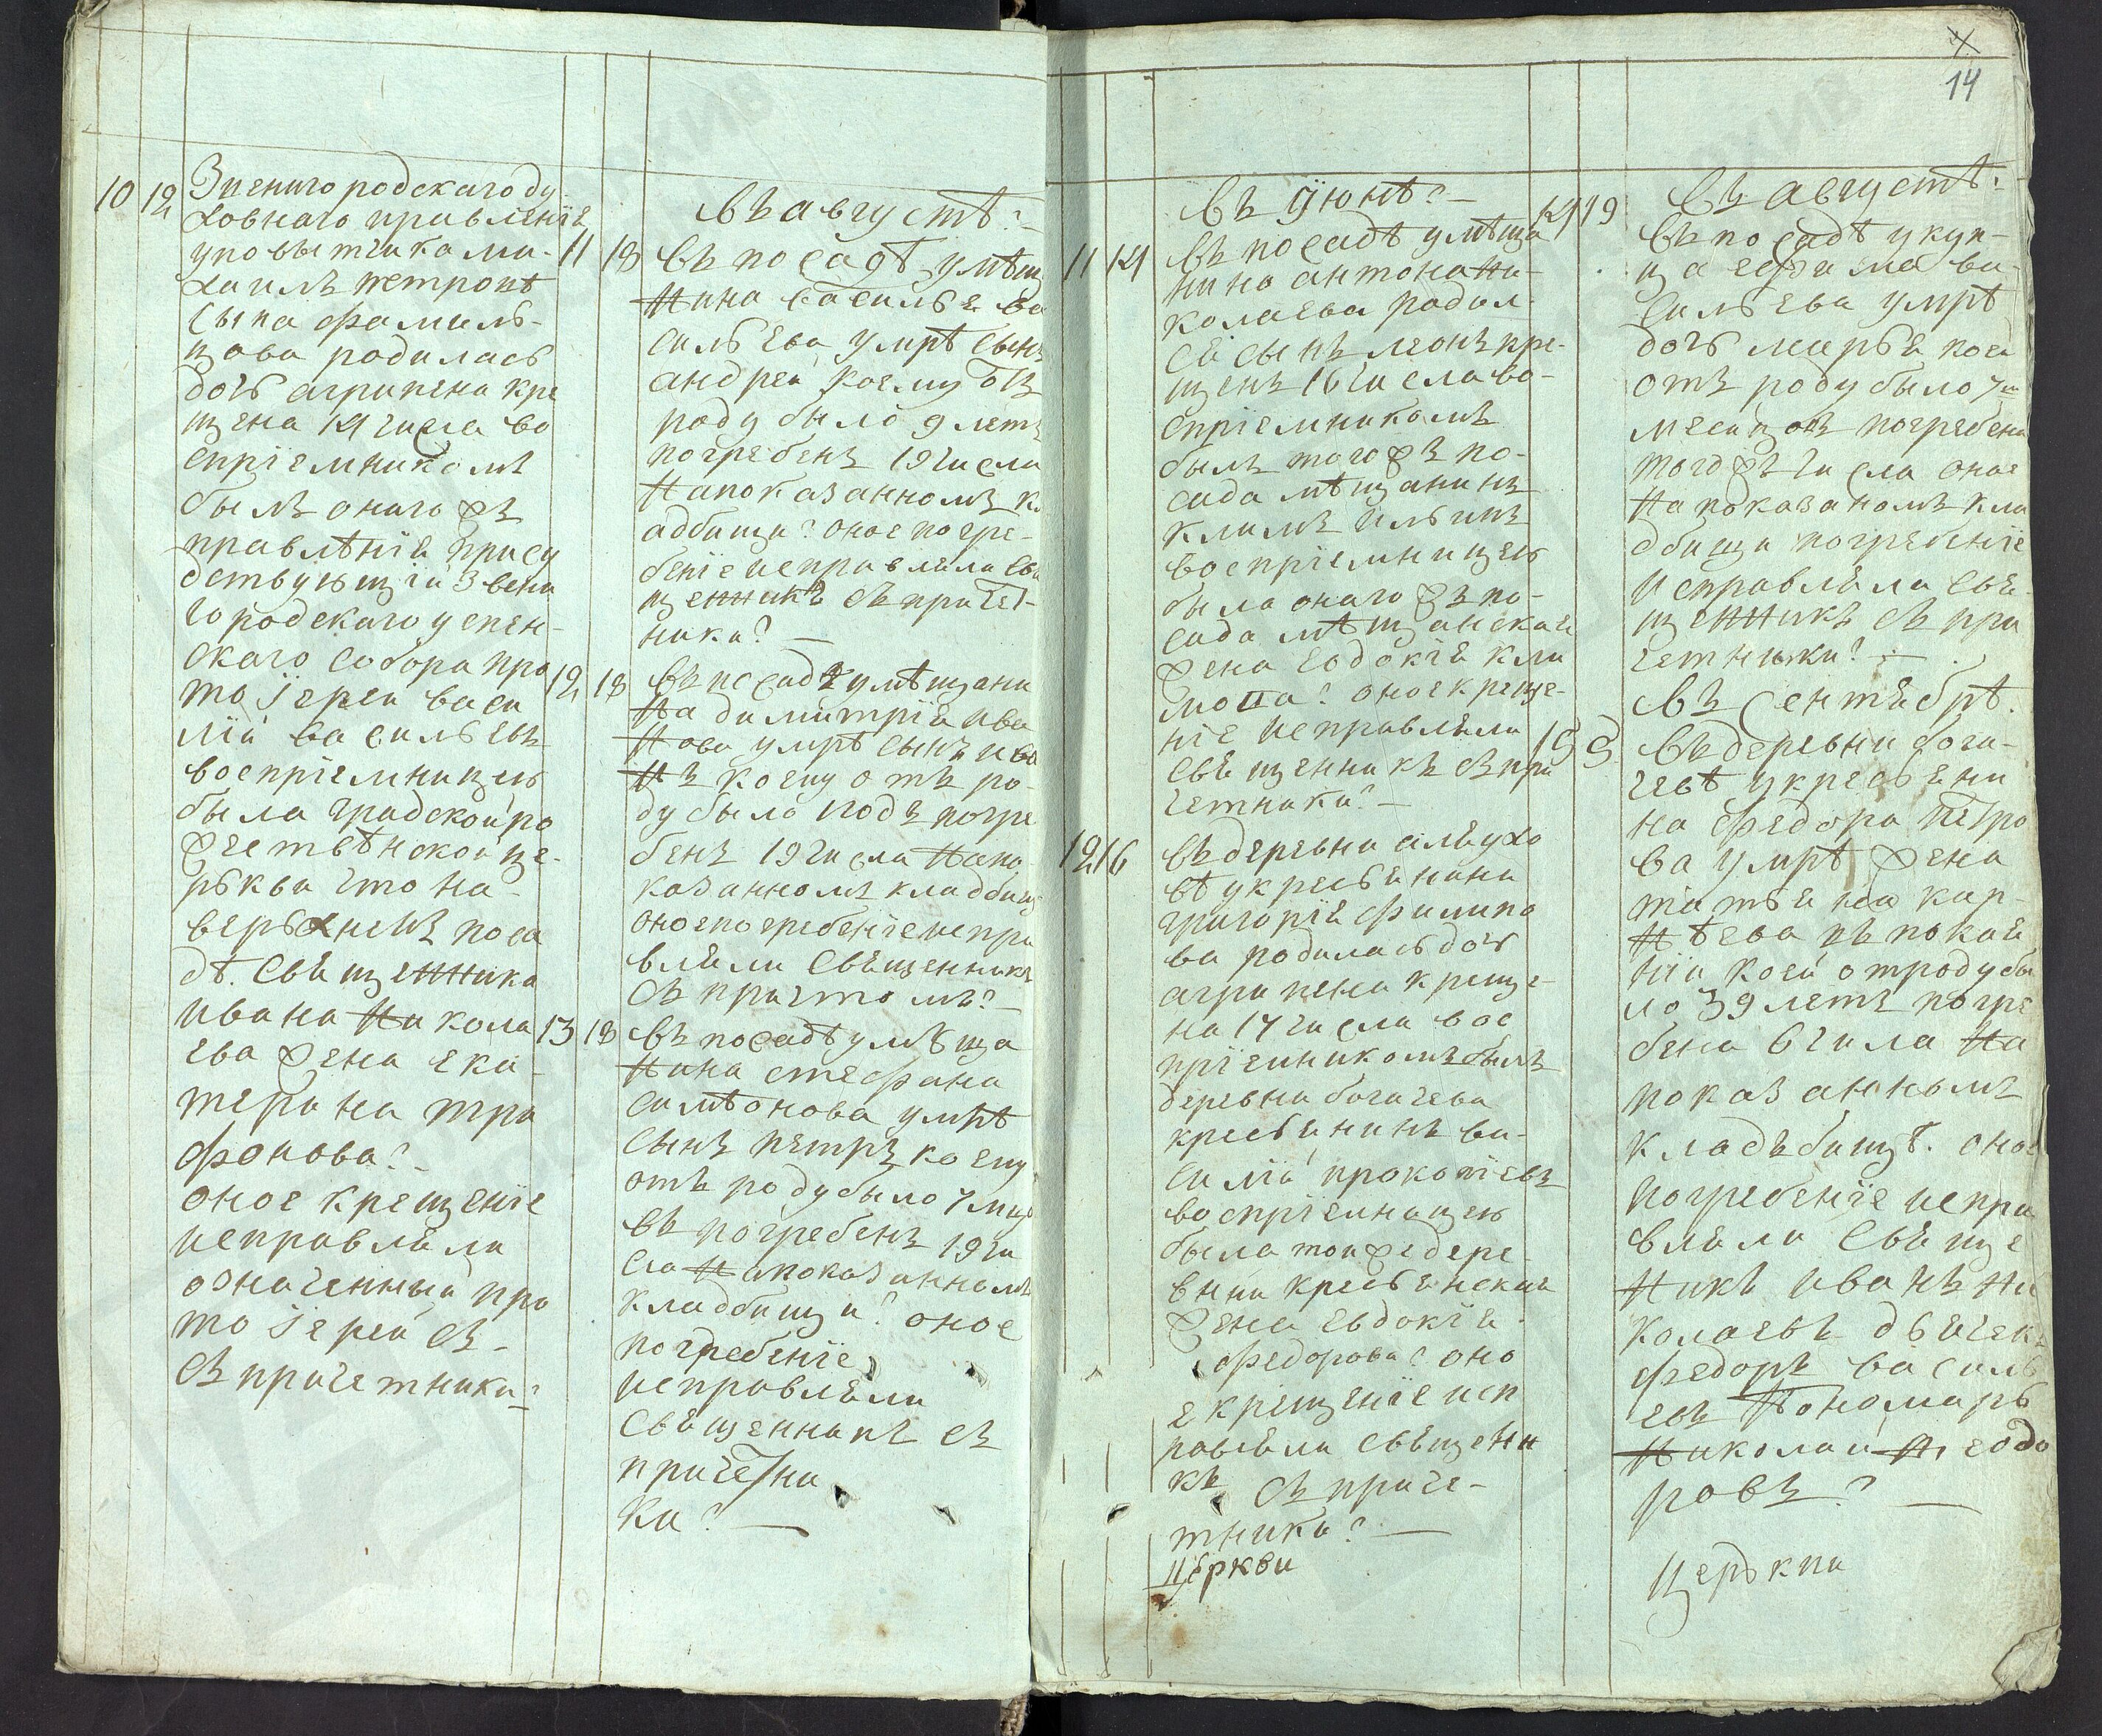 10 12 Звенигородскаго ду
ховнаго правленїе
у повытчика ми-
хаилѣ петровъ
сына фамиль-
цова родилась
дочь агрипена кре
щена 14 числа во
спрїемникомъ
былъ онаго жъ
правлѣнїя прису
дствующїй Звени
городскаго успен-
скаго собора про
тоїерей васи
лїй васильевъ
воспрїемницею
была градской ро
жественской це-
рькви что на
верьхнемъ поса
дѣ. священника
ивана никола
ева жена ека-
терина три
фонова?-
оное крещенїе
исправляли
означенный про
тоїерей съ-
съ причетники?
въ августѣ?
11 18 въ посадѣ у мѣщ
нина василья ва
сильева умрѣ сынъ
андрей коему отъ
роду было 9 летъ
погребенъ 19 числа
на показанномъ к
адбищи? оное погре-
бенїе исправляли свя
щенникъ съ причет-
ники? —
12 18 въ посадѣ у мѣщани
на димитрїя ива
нова умрѣ сынъ ива
нъ коему отъ ро-
ду было 1 годъ погре
бенъ 19 числа на по
казанномъ кладбищ
оное погребенїе испра
вляли священникъ
съ причтомъ? —
13 18 въ посадѣ у мѣща
нина стефана
симѣонова умрѣ
сынъ петръ коему
отъ роду было 7 мцо
въ погребенъ 19 чи
сла на показанномъ
кладбищи? оное
погребенїе
исправляли
священникъ съ
причетни
ки? —
14
въ їюнѣ? —
11 14 въ посадѣ у мѣща
нина антона ни-
колаева родил-
ся сынъ леонъ кре-
щенъ 16 числа во-
спрїемникомъ
былъ того жъ по-
сада мѣщанинъ
климъ ильинъ
воспрїемницею
была онаго жъ по-
сада мѣщанская
жена евдокїя кли
мова? оное креще-
нїе исправляли
священникъ съ при
четники? —
12 16 въ деревни аляухо
вѣ у кресьянина
григорїя филипо
ва родилась дочь
агрипена креще-
на 17 числа вос
прїемникомъ былъ
деревни богачева
кресьянинъ ва-
силїй прокопїевъ
воспрїемницею
была той же дере-
вни кресьянская
жена евдокїя
федорова? оно
е крещенїе исп
равляли священи
къ съ приче-
тники? —
церкви
14 19 въ августѣ?
въ посадѣ у куп-
ца герасима ва-
сильева умрѣ
дочь марья коей
отъ роду было 7м
месяцовъ погребена
того жъ числа оная
на показаномъ кла
дбищи погребенїе
исправляли свя-
щенникъ съ при
четники? —
въ сентябрѣ.
15 5 въ деревни бога-
чевѣ у кресьяни
на федора петро
ва умрѣ жена
татьяна кар-
нѣева въ покая
нїи коей отроду бы
ло 39 летъ погре
бена 6 чила на
показанномъ
кладъбищѣ. оное
погребенїе испра
вляли свяще
никъ иванъ ни
колаевъ дьячекъ
федоръ василь
евъ пономарь
николай федо
ровъ? —
церькви